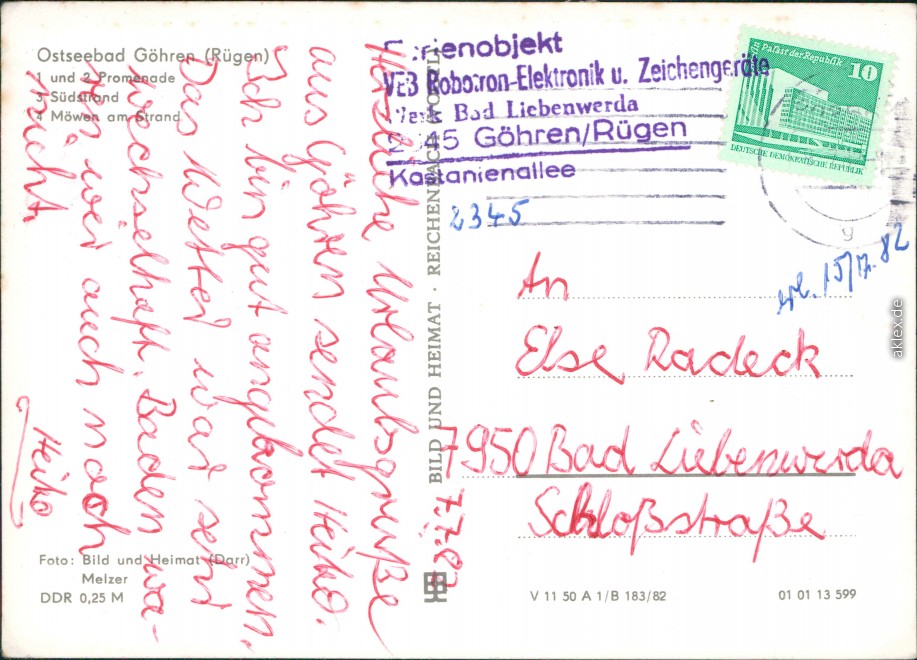 Ostseebad Göhren (Rügen)
1 und 2 Promenade
3 Südstrand
4 Möwen am Strand
Ferienobjekt
VEB Robotron-Elektronik u. Zeichengeräte
Werk Bad Liebenwerda
2345 Göhren/Rügen
Kastanienallee
2345
Palast der Republik
10
DEUTSCHE DEMOKRATISCHE REPUBLIK
g
erl. 15/7. 82
Herzliche Urlaubsgrüße
aus Göhren sendet Heiko.
Ich bin gut angekommen.
Das Wetter war sehr
wechselhaft. Baden wa-
ren wir auch noch
nicht.
Heiko
7.7.82
An
Else Radeck
7950 Bad Liebenwerda
Schloßstraße
BILD UND HEIMAT · REICHENBACH
Foto: Bild und Heimat (Darr)
Melzer
DDR 0,25 M
V 11 50 A 1/B 183/82
01 01 13 599
aklex.de